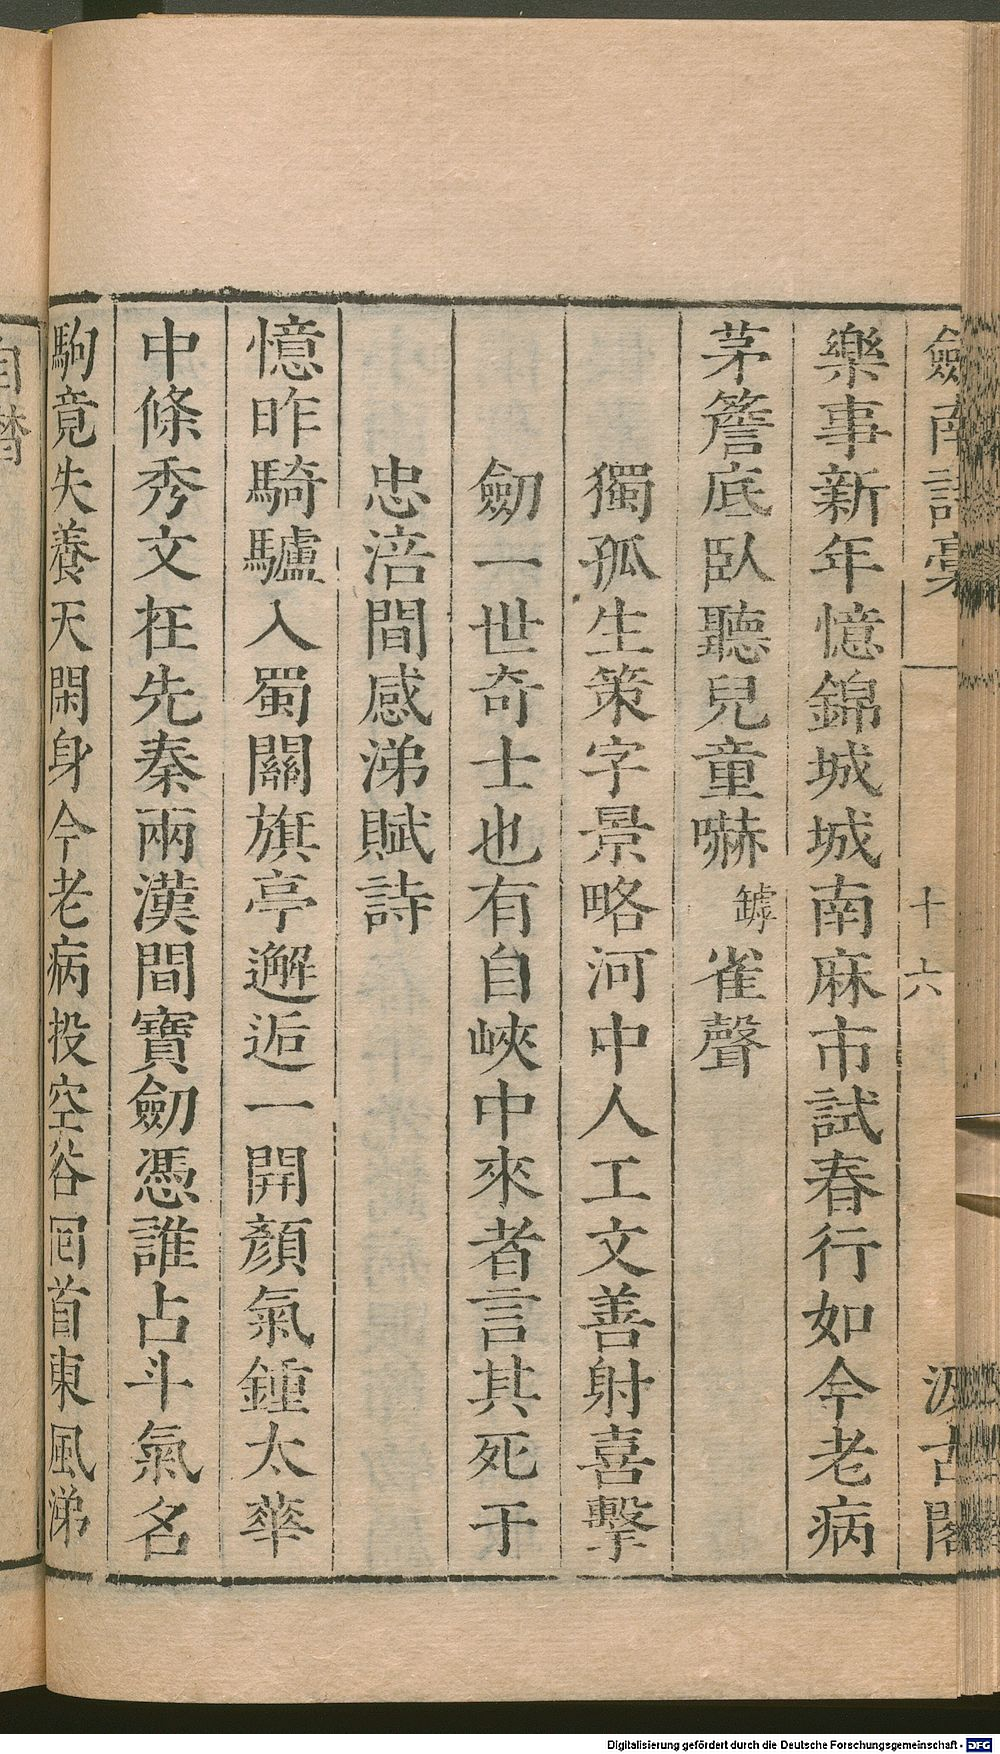 劍南詩稾
十六
汲古閣
樂事新年憶錦城城南麻市試春行如今老病
茅簷底臥聽兒童嚇罅雀聲
獨孤生策字景略河中人工文善射喜擊
劒一世奇士也有自峽中來者言其死于
忠涪間感涕賦詩
憶昨騎驢入蜀關旗亭邂逅一開顏氣鍾太華
中條秀文在先秦兩漢間寶劒憑誰占斗氣名
駒竟失養天閑身今老病投空谷回首東風涕
Digitalisierung gefördert durch die Deutsche Forschungsgemeinschaft - DFG